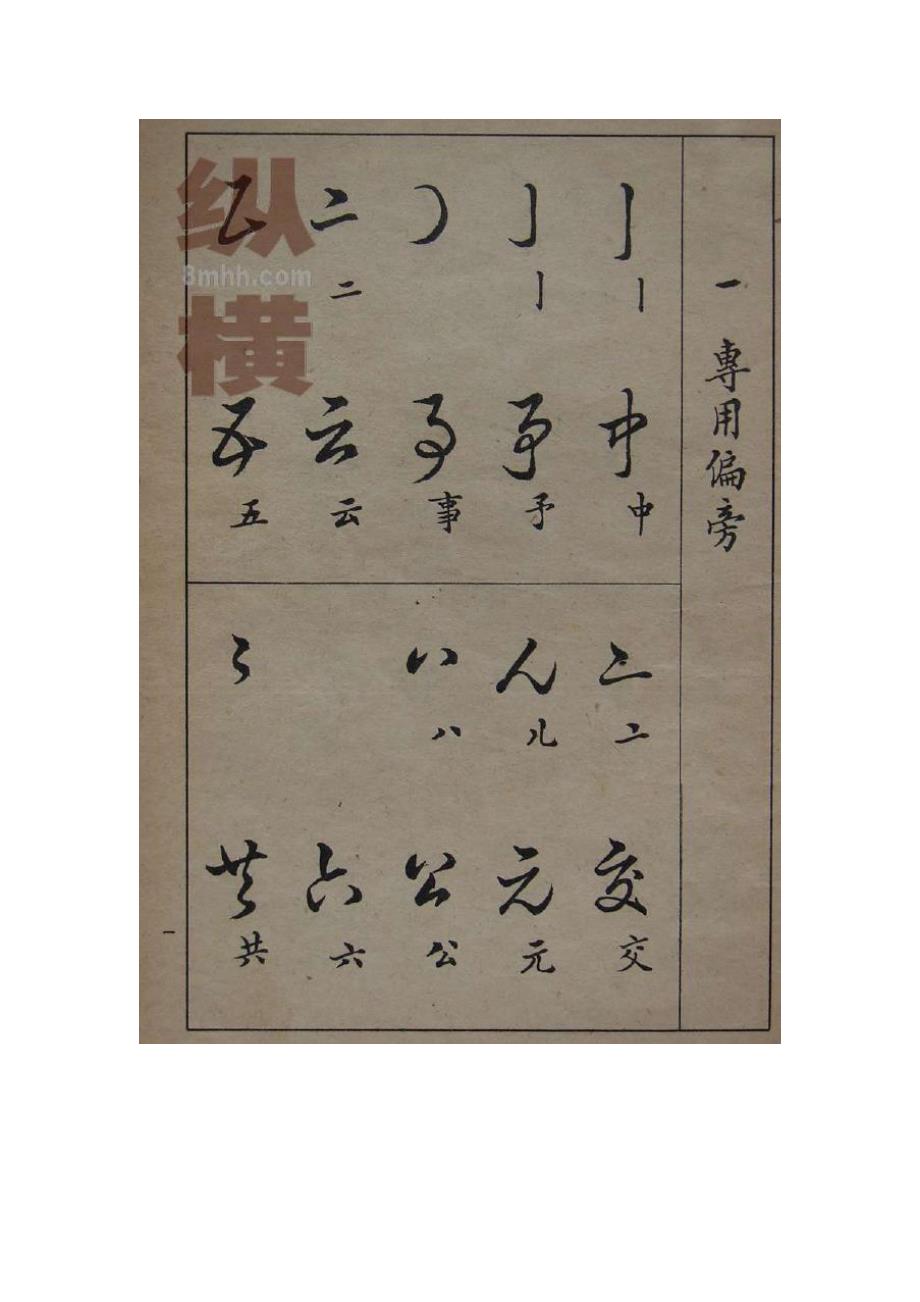 一 專用偏旁
丨 丨 中 中
亅 亅 予 予
亅 事 事
二 二 云 云
五 五
亠 亠 交 交
儿 儿 元 元
八 八 公 公
六 六
共 共
一
纵横
3mhh.com